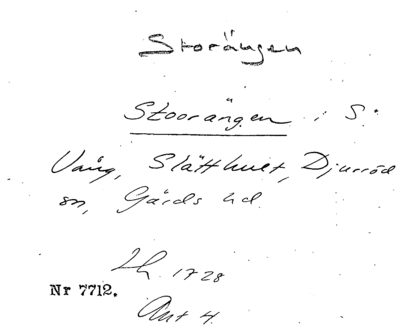 Storängen
Stoorängen i S.
Vång, Slätthult, Djurröd
sn, Gärds hd
Lh 1728
Nr 7712.
Ant 4